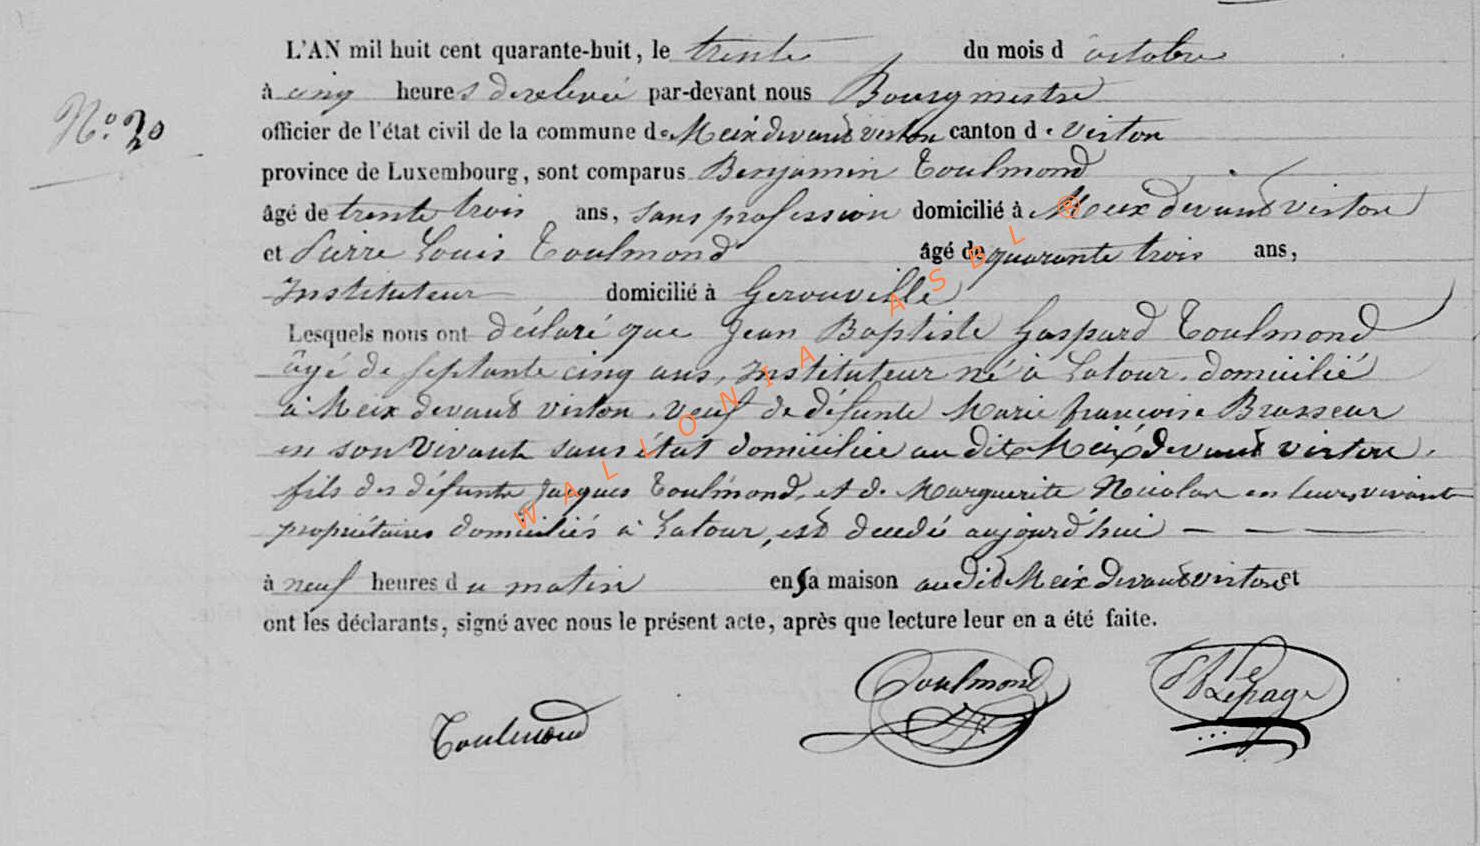 L'AN mil huit cent quarante-huit, le trente du mois d'octobre
à cinq heures de relevée par-devant nous Bourgmestre
N.º 20
officier de l'état civil de la commune de Meix devant virton canton de Virton
province de Luxembourg, sont comparus Benjamin Toulmond
âgé de trente trois ans, sans profession domicilié à Meix devant virton
et Pierre Louis Toulmond âgé de quarante trois ans,
Instituteur domicilié à Gerouville
Lesquels nous ont déclaré que Jean Baptiste Gaspard Toulmond
âgé de septante cinq ans, Instituteur né à Latour, domicilié
à Meix devant virton, veuf de défunte Marie françoise Brasseur
en son vivant sans état domiciliée au dit Meix devant virton,
fils des défunts Jacques Toulmond, et de Marguerite Nicolas en leurs vivants
propriétaires domiciliés à Latour, est décédé aujourd'hui — — —
à neuf heures du matin en sa maison audit Meix devant virton et
ont les déclarants, signé avec nous le présent acte, après que lecture leur en a été faite.
Toulmond
Toulmond
Lepage
WALLONIA ASBL ®